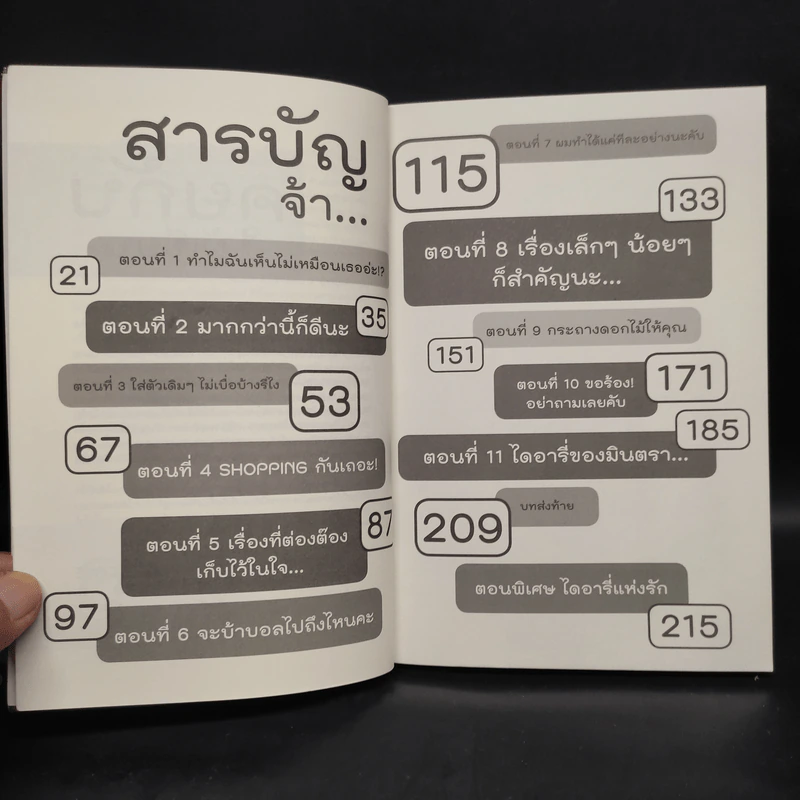 สารบัญ
จ้า...
ตอนที่ 1 ทำไมฉันเห็นไม่เหมือนเธออ่ะ!?
21
ตอนที่ 2 มากกว่านี้ก็ดีนะ
35
ตอนที่ 3 ใส่ตัวเดิมๆ ไม่เบื่อบ้างรึไง
53
67
ตอนที่ 4 SHOPPING กันเถอะ!
87
ตอนที่ 5 เรื่องที่ต่องต๊อง
เก็บไว้ในใจ...
97
ตอนที่ 6 จะบ้าบอลไปถึงไหนคะ
ตอนที่ 7 ผมทำได้แค่ทีละอย่างนะคับ
115
133
ตอนที่ 8 เรื่องเล็กๆ น้อยๆ
ก็สำคัญนะ...
ตอนที่ 9 กระถางดอกไม้ให้คุณ
151
ตอนที่ 10 ขอร้อง!
อย่าถามเลยคับ
171
185
ตอนที่ 11 ไดอารี่ของมินตรา...
บทส่งท้าย
209
ตอนพิเศษ ไดอารี่แห่งรัก
215